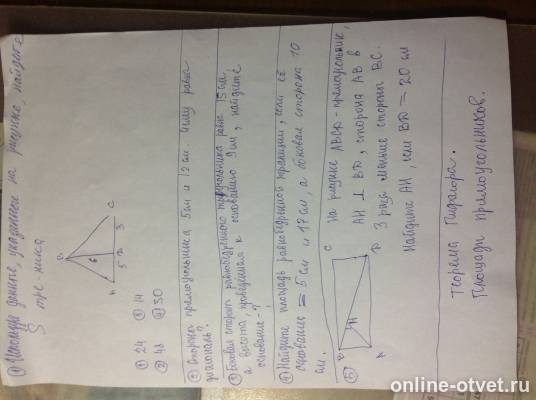 ① Используя данные, указанные на рисунке, найдите
S треугольника
B
6
A 5 D 3 C
① 24 ③ 14
② 48 ④ 30
② Стороны прямоугольника 5 см и 12 см. Чему равна
диагональ?
③ Боковая сторона равнобедренного треугольника равна 15 см,
а высота, проведенная к основанию 9 см, найдите
основание - ?
④ Найдите площадь равнобедренной трапеции, если её
основание = 5 см и 17 см, а боковая сторона 10
см.
⑤ На рисунке ABCD - прямоугольник,
AH ⊥ BD, сторона AB в
3 раза меньше стороны BC.
Найдите AH, если BD = 20 см
B C
H
A D
Теорема Пифагора.
Площади прямоугольников.
online-otvet.ru